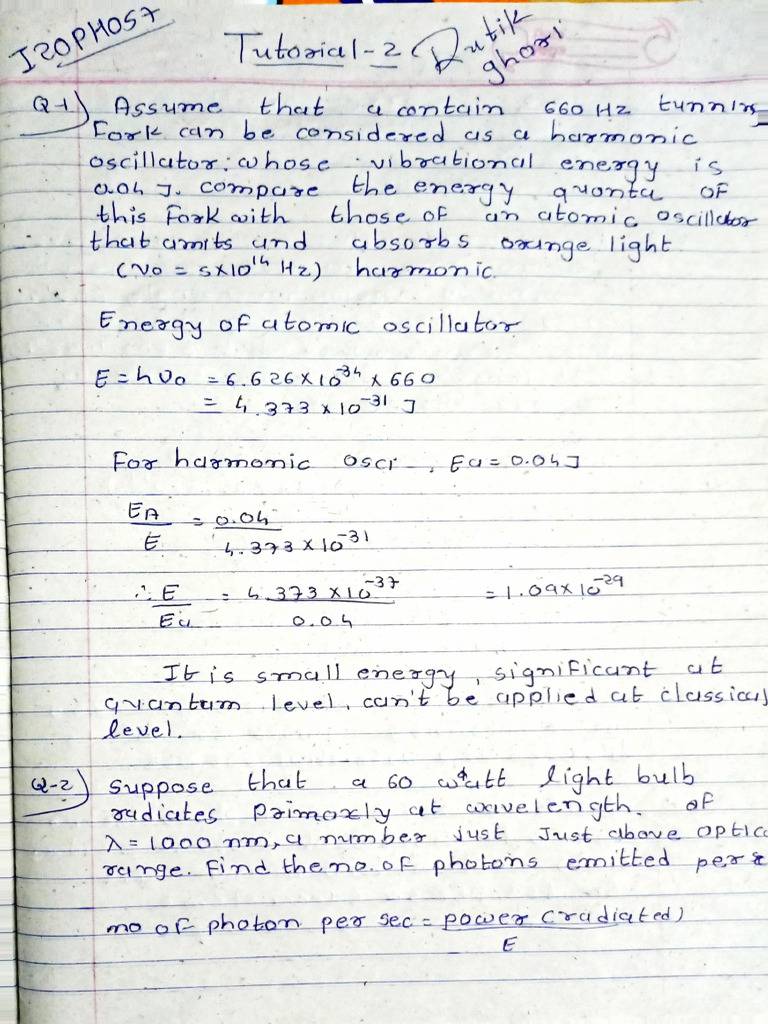 IZOPHOS7
Tutorial-2 Rutik
ghori
Q-1) Assume that a contain 660 Hz tunning
Fork can be considered as a harmonic
oscillator: whose vibrational energy is
0.04 J. compare the energy quonta of
this Fork with those of an atomic oscillator
that amits and absorbs orange light
(ν0 = 5×10¹⁴ Hz) harmonic.
Energy of atomic oscillator
E = hν0 = 6.626 × 10⁻³⁴ × 660
= 4.373 × 10⁻³¹ J
For harmonic osci , Ea = 0.04 J
EA / E = 0.04 / 4.373 × 10⁻³¹
∴ E / Ea = 4.373 × 10⁻³⁷ / 0.04 = 1.09 × 10⁻²⁹
It is small energy, significant at
quantum level, can't be applied at classical
level.
Q-2) suppose that a 60 watt light bulb
radiates primarly at wavelength. of
λ = 1000 nm, a number just Just above optic
range. Find the no. of photons emitted per
mo of photon per sec = power (radiated) / E